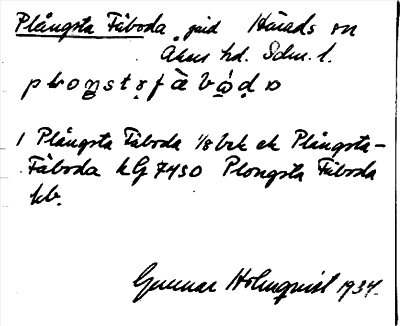 Plångsta Fäboda, jwid Härads sn
Åkers hd. Sdm. l.
1 Plångsta Fäboda 1/8 bek ek Plångsta-
Fäboda kG 7450 Plongsta Fäboda
kb.
Gunnar Holmqvist 1934.